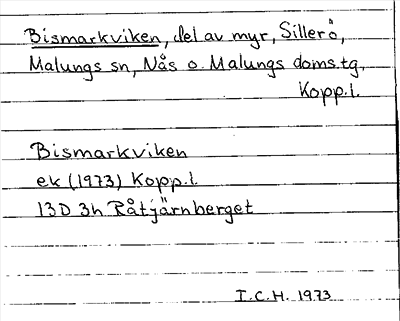 Bismarkviken, del av myr, Sillerö,
Malungs sn, Nås o. Malungs doms.tg,
Kopp.l.
Bismarkviken
ek (1973) Kopp.l.
13D 3h Råtjärnberget
I.C.H. 1973